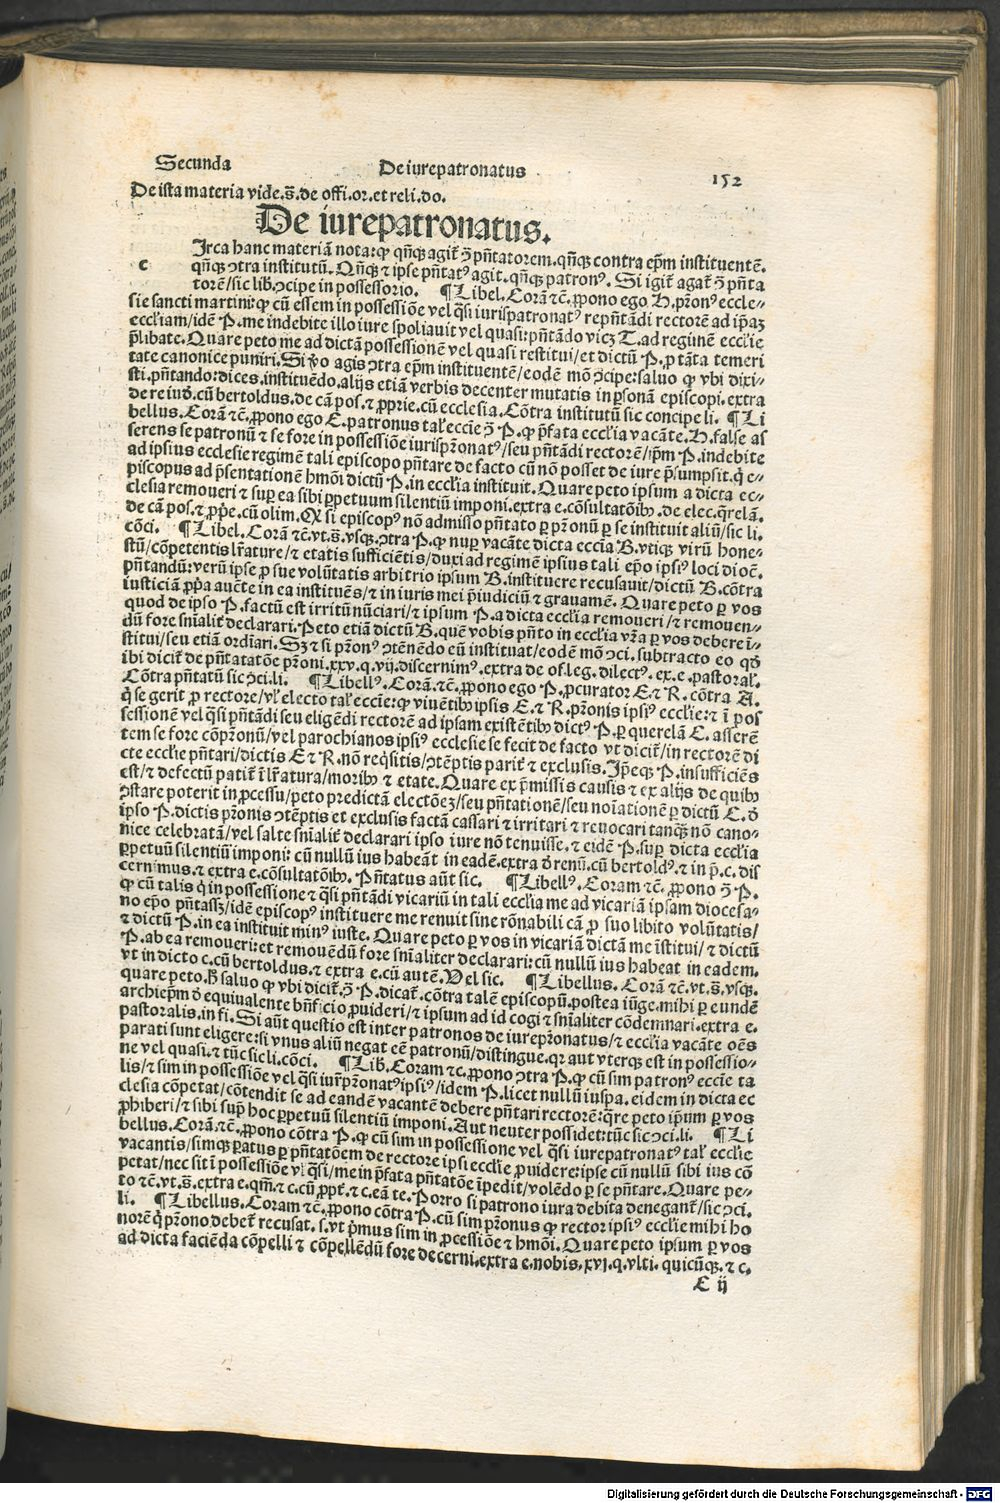 Secunda De iurepatronatus 152
De ista materia vide.s̄.de offi.or.et reli.do.
De iurepatronatus.
c Irca hanc materiā nota:ꝙ qn̄qꝫ agit᷑ ↄ̄ pn̄tatorem.qn̄qꝫ contra ep̄m instituentē.
qn̄qꝫ ↄtra institutū. Qn̄qꝫ ⁊ ipse pn̄tatꝰ agit.qn̄qꝫ patronꝰ. Si igit᷑ agat᷑ ↄ̄ pn̄ta
torē/sic lib.ↄcipe in possessorio. ¶Libel. Corā ⁊c̄.ꝓpono ego H.pr̄onꝰ eccle⸗
sie sancti martini:ꝙ cū essem in possessiōe vel q̄si iurispatronatꝰ repn̄tādi rectorē ad ip̄aꝫ
ecclīam/idē P.me indebite illo iure spoliauit vel quasi:pn̄tādo vicꝫ T.ad regimē ecclīe
p̄libate. Quare peto me ad dictā possessionē vel quasi restitui/et dictū P.ꝓ tāta temeri
tate canonice puniri. Si v̄o agis ↄtra ep̄m instituentē/eodē mō ↄ̄cipe:saluo ꝙ vbi dixi⸗
sti.pn̄tando:dices.instituēdo.alijs etiā verbis decenter mutatis in ꝑsonā episcopi.extra
de re iud̄.cū bertoldus.de cā pos.⁊ ꝓprie.cū ecclesia. Cōtra institutū sic concipe li. ¶Li
bellus. Corā ⁊c̄.ꝓpono ego E.patronus tal᷑ eccīe ↄ̄ P.ꝙ p̄fata ecclīa vacāte.H.false as
serens se patronū ⁊ se fore in possessiōe iurispr̄onatꝰ/seu pn̄tādi rectorē/ip̄m P.indebite
ad ipsius ecclesie regimē tali episcopo pn̄tare de facto cū nō posset de iure p̄sumpsit.q̄ e⸗
piscopus ad p̄sentationē hmōi dictū P.in ecclīa instituit. Quare peto ipsum a dicta ec⸗
clesia remoueri ⁊ suꝑ ea sibi ꝑpetuum silentiū imponi.extra e.cōsultatōibꝰ.de elec.q̄relā.
de cā pos.⁊ ꝓpe.cū olim. Qꝫ si episcopꝰ nō admisso pn̄tato ꝑ pr̄onū ꝑ se instituit aliū/sic li.
cōci. ¶Libel. Corā ⁊c̄.vt.s̄.vsqꝫ.ↄtra P.ꝙ nuꝑ vacāte dicta eccīa B.vtiqꝫ virū hone⸗
stū/cōpetentis lr̄ature/⁊ etatis sufficiētis/duxi ad regimē ipsius tali ep̄o ipsiꝰ loci dioc̄.
pn̄tandū:verū ipse ꝓ sue volūtatis arbitrio ipsum B.instituere recusauit/dictū B.cōtra
iusticiā ꝓp̄a aucte in ea instituēs/⁊ in iuris mei p̄iudiciū ⁊ grauamē. Quare peto ꝑ vos
quod de ipso P.factū est irritū nūciari/⁊ ipsum P.a dicta ecclīa remoueri/⁊ remouen⸗
dū fore sn̄ialit᷑ declarari. Peto etiā dictū B.quē vobis pn̄to in ecclīa vr̄a ꝑ vos debere ī⸗
stitui/seu etiā ordīari. Sꝫ ⁊ si pr̄onꝰ ↄtēnēdo eū instituat/eodē mō ↄci.subtracto eo qd̄
ibi dicit᷑ de pn̄tatatōe pr̄oni.xxv.q.vij.discernimꝰ.extra de of.leg.dilectꝰ.ex.e.pastoral᷑.
Cōtra pn̄tatū sic ↄci.li. ¶Libellꝰ. Corā.⁊c̄.ꝓpono ego P.ꝓcurator E.⁊ R.cōtra A.
q̄ se gerit ꝓ rectore/vl᷑ electo tal᷑ eccīe:ꝙ viuētibꝰ ipsis E.⁊ R.pr̄onis ipsiꝰ ecclīe:⁊ ī pos
sessionē vel q̄si pn̄tādi seu eligēdi rectorē ad ipsam existētibꝰ dictꝰ P.ꝑ querelā C.asserē
tem se fore cōpr̄onū/vel parochianos ipsiꝰ ecclesie se fecit de facto vt dicit᷑/in rectorē di
cte ecclīe pn̄tari/dictis E ⁊ R.nō reqsitis/ↄtēptis parit᷑ ⁊ exclusis. Ip̄eqꝫ P.insufficiēs
est/⁊ defectū patit᷑ ī lr̄atura/moribꝰ ⁊ etate. Quare ex p̄missis causis ⁊ ex alijs de quibꝰ
ↄstare poterit in ꝓcessu/peto predictā electōeꝫ/seu pn̄tationē/seu noīationē ꝑ dictū C.d̄
ipso P.dictis pr̄onis ↄtēptis et exclusis factā cassari ⁊ irritari ⁊ reuocari tanqꝫ nō cano⸗
nice celebratā/vel salte sn̄ialit᷑ declarari ipso iure nō tenuisse.⁊ eidē P.suꝑ dicta ecclīa
ꝑpetuū silentiū imponi: cū nullū ius habeāt in eadē.extra d̄ renū.cū bertoldꝰ.⁊ in p̄.c.dis
cernimus.⁊ extra e.cōsultatōibꝰ. Pn̄tatus aūt sic. ¶Libellꝰ. Coram ⁊c̄.ꝓpono ↄ̄ P.
ꝙ cū talis q̄ in possessione ⁊ q̄si pn̄tādi vicariū in tali ecclīa me ad vicariā ipsam diocesa⸗
no ep̄o pn̄tassꝫ/idē episcopꝰ instituere me renuit sine rōnabili cā ꝓ suo libito volūtatis/
⁊ dictū P.in ea instituit minꝰ iuste. Quare peto ꝑ vos in vicariā dictā me īstitui/⁊ dictū
P.ab ea remoueri:et remouēdū fore sn̄ialiter declarari:cū nullū ius habeat in eadem.
vt in dicto c.cū bertoldus.⁊ extra e.cū autē. Vel sic. ¶Libellus. Corā ⁊c̄.vt.s̄.vsqꝫ.
quare peto.hͦ saluo ꝙ vbi dicit᷑.ↄ̄ P.dicat᷑.cōtra talē episcopū.postea iūge.mihi ꝑ eundē
archiep̄m d̄ equiualente bn̄ficio ꝓuideri/⁊ ipsum ad id cogi ⁊ sn̄ialiter cōdemnari.extra e.
pastoralis.in fi. Si aūt questio est inter patronos de iurepr̄onatus/⁊ ecclīa vacāte oēs
parati sunt eligere:si vnus aliū negat eē patronū/distingue.qꝛ aut vterqꝫ est in possessio⸗
ne vel quasi.⁊ tūc sic li.cōci. ¶Lib̄. Coram ⁊c.ꝓpono ↄtra P.ꝙ cū sim patronꝰ eccīe ta
lis/⁊ sim in possessiōe vel q̄si iur̄pr̄onatꝰ ipsiꝰ/idem P.licet nullū iuspa.eidem in dicta ec
clesia cōpetat/cōtendit se ad eandē vacantē debere pn̄tari rectorē:q̄re peto ip̄um ꝑ vos
ꝓhiberi/⁊ sibi suꝑ hoc ꝑpetuū silentiū imponi. Aut neuter possidet:tūc sic ↄci.li. ¶Li
bellus. Corā.⁊c̄.ꝓpono cōtra P.ꝙ cū sim in possessione vel q̄si iurepatronatꝰ tal᷑ ecclīe
vacantis/simqꝫ ꝑatus ꝑ pn̄tatōem de rectore ipsi ecclīe ꝓuidere:ipse cū nullū sibi ius cō
petat/nec sit ī possessiōe vl᷑ q̄si/me in p̄fata pn̄tatōe īpedit/volēdo ꝑ se pn̄tare. Quare pe⸗
to ⁊c̄.vt.s̄.extra e.qm̄.⁊ c.cū ꝓpt᷑.⁊ c.eā te. Porro si patrono iura debita denegant᷑/sic ↄci.
li. ¶Libellus. Coram ⁊c̄.ꝓpono cōtra P.cū sim pr̄onus ꝙ rector ipsiꝰ ecclīe mihi ho
norē q̄ pr̄ono debet᷑ recusat.s.vt p̄mus sim in ꝓcessiōe ⁊ hmōi. Quare peto ipsum ꝑ vos
ad dicta faciēda cōpelli ⁊ cōpellēdū fore decerni.extra e.nobis.xvj.q.vlti.quicūqꝫ.⁊ c.
E ij
Digitalisierung gefördert durch die Deutsche Forschungsgemeinschaft - DFG